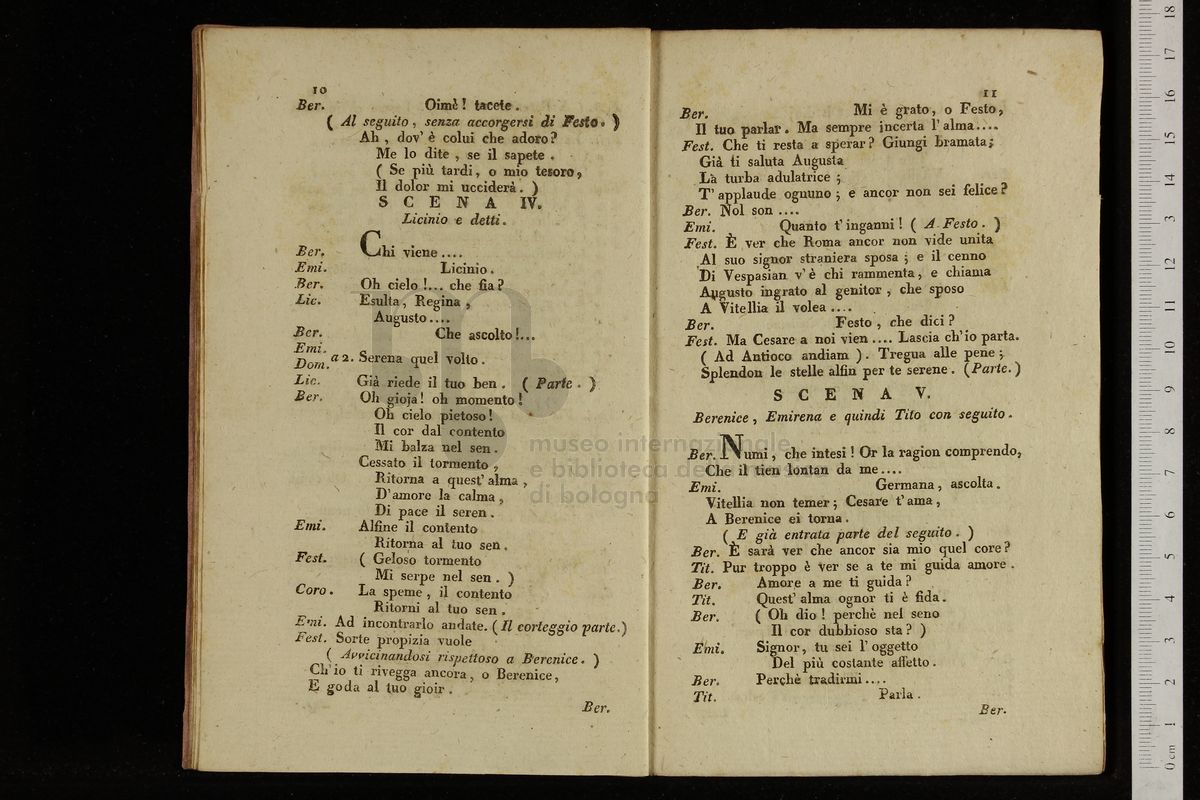 10
Ber. Oimè! tacete.
( Al seguito, senza accorgersi di Festo. )
Ah, dov' è colui che adoro?
Me lo dite, se il sapete.
( Se più tardi, o mio tesoro,
Il dolor mi ucciderà. )
SCENA IV.
Licinio e detti.
Ber. Chi viene ....
Emi. Licinio.
Ber. Oh cielo!... che fia?
Lic. Esulta, Regina,
Augusto....
Ber. Che ascolto!...
Emi.
Dom. a 2. Serena quel volto.
Lic. Già riede il tuo ben. ( Parte. )
Ber. Oh gioja! oh momento!
Oh cielo pietoso!
Il cor dal contento
Mi balza nel sen.
Cessato il tormento,
Ritorna a quest' alma,
D'amore la calma,
Di pace il seren.
Emi. Alfine il contento
Ritorna al tuo sen.
Fest. ( Geloso tormento
Mi serpe nel sen. )
Coro. La speme, il contento
Ritorni al tuo sen.
Emi. Ad incontrarlo andate. ( Il corteggio parte.)
Fest. Sorte propizia vuole
( Avvicinandosi rispettoso a Berenice. )
Ch' io ti rivegga ancora, o Berenice,
E goda al tuo gioir.
Ber.
11
Ber. Mi è grato, o Festo,
Il tuo parlar. Ma sempre incerta l'alma....
Fest. Che ti resta a sperar? Giungi bramata;
Già ti saluta Augusta
La turba adulatrice;
T' applaude ognuno; e ancor non sei felice?
Ber. Nol son ....
Emi. Quanto t' inganni! ( A Festo. )
Fest. È ver che Roma ancor non vide unita
Al suo signor straniera sposa; e il cenno
Di Vespasian v' è chi rammenta, e chiama
Augusto ingrato al genitor, che sposo
A Vitellia il volea ....
Ber. Festo, che dici?
Fest. Ma Cesare a noi vien .... Lascia ch'io parta.
( Ad Antioco andiam ). Tregua alle pene;
Splendon le stelle alfin per te serene. (Parte.)
SCENA V.
Berenice, Emirena e quindi Tito con seguito.
Ber. Numi, che intesi! Or la ragion comprendo,
Che il tien lontan da me....
Emi. Germana, ascolta.
Vitellia non temer; Cesare t'ama,
A Berenice ei torna.
( E già entrata parte del seguito. )
Ber. E sarà ver che ancor sia mio quel core?
Tit. Pur troppo è ver se a te mi guida amore.
Ber. Amore a me ti guida?
Tit. Quest' alma ognor ti è fida.
Ber. ( Oh dio! perchè nel seno
Il cor dubbioso sta? )
Emi. Signor, tu sei l' oggetto
Del più costante affetto.
Ber. Perchè tradirmi ....
Tit. Parla.
Ber.
museo internazionale
e biblioteca della musica
di bologna
0 cm 1 2 3 4 5 6 7 8 9 10 11 12 13 14 15 16 17 18